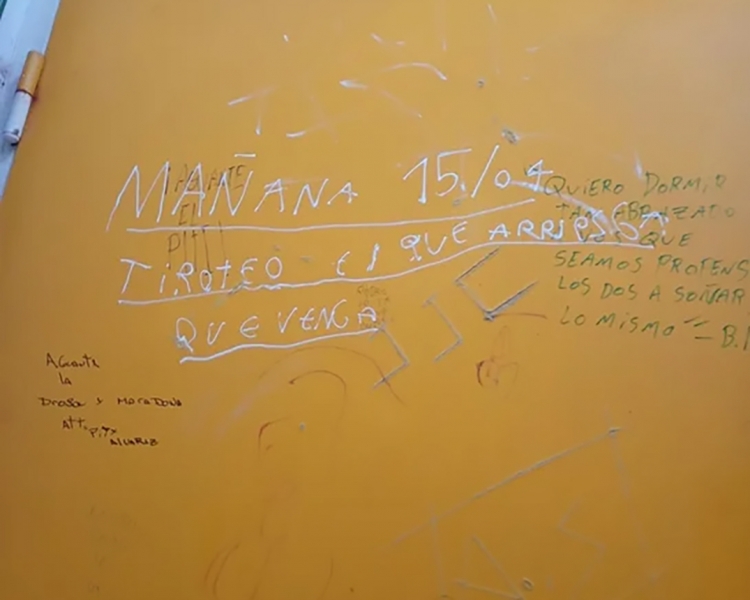 MAÑANA 15/04
TIROTEO EL QUE ARRIESGA
QUE VENGA
AGUANTE
EL
PITY
QUIERO DORMIR
TAN ABRAZADO
QUE
SEAMOS PROFENS
LOS DOS A SOÑAR
LO MISMO – B.I
AGUANTE
la
Droga y MaraDona
Att. Pity
ALVAREZ